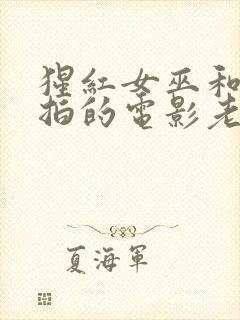 猩紅女巫和
拍的電影老
夏海軍